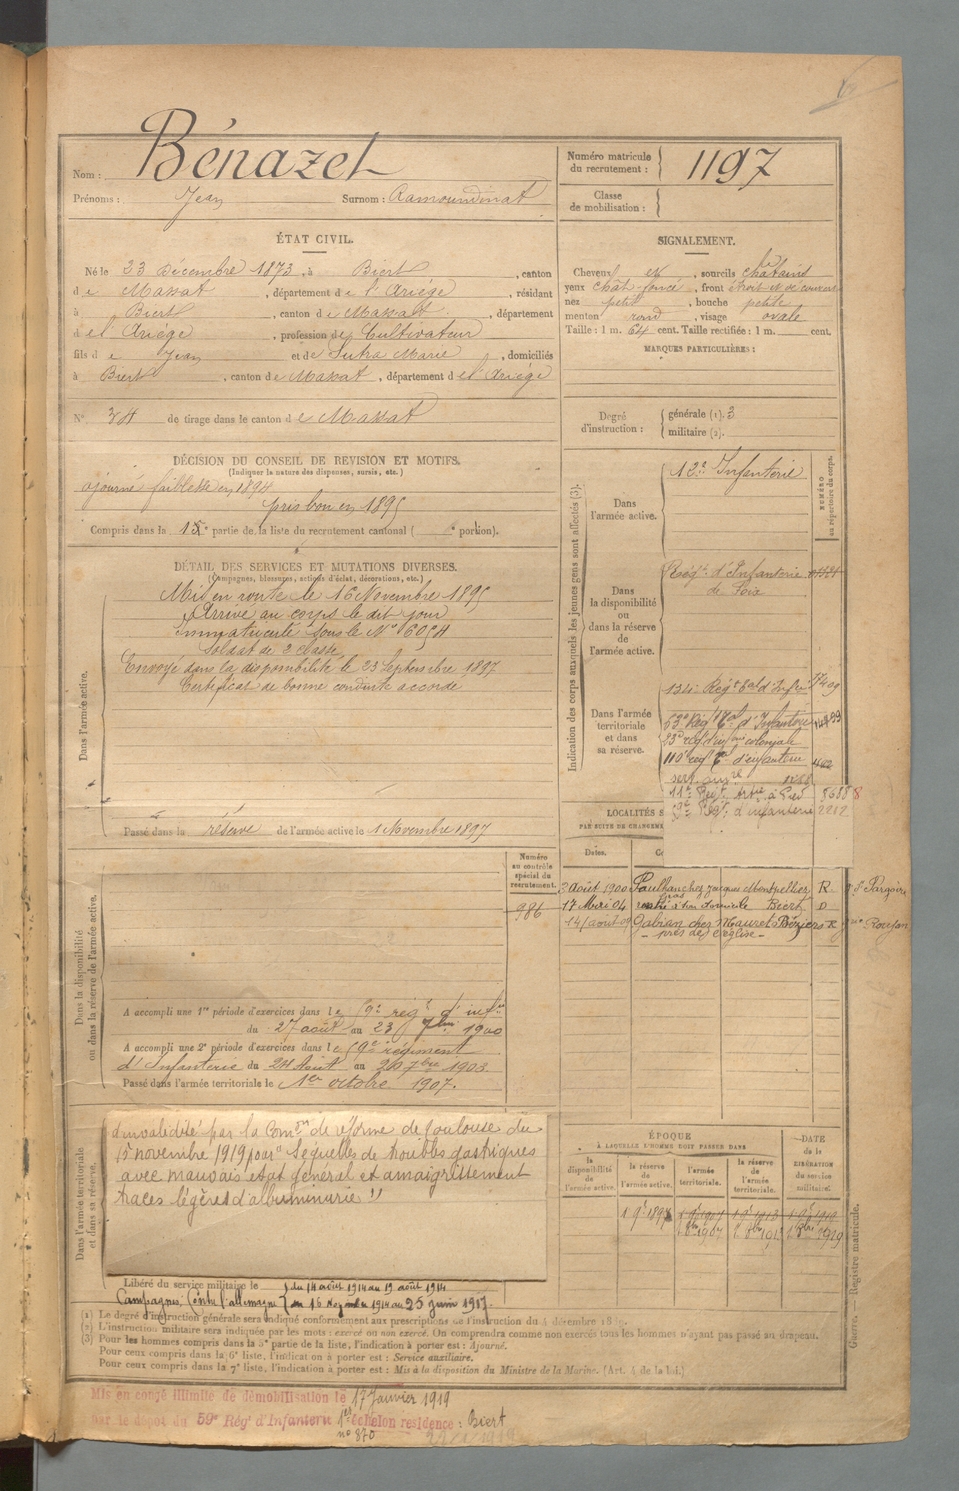 Nom : Bénazet
Prénoms : Jean Surnom : Ramoundinat
Numéro matricule du recrutement : 1197
Classe de mobilisation :
ÉTAT CIVIL.
Né le 23 Décembre 1873, à Biert, canton
de Massat, département de l'Ariège, résidant
à Biert, canton de Massat, département
de l'Ariège, profession de Cultivateur
fils de Jean et de Sutra Marie, domiciliés
à Biert, canton de Massat, département de l'Ariège
N° 34 de tirage dans le canton de Massat
SIGNALEMENT.
Cheveux et, sourcils châtains
yeux chât. foncé, front étroit et découvert
nez petit, bouche petite
menton rond, visage ovale
Taille : 1 m. 64 cent. Taille rectifiée : 1 m. cent.
MARQUES PARTICULIÈRES :
Degré d'instruction : générale (1). 3
militaire (2).
DÉCISION DU CONSEIL DE REVISION ET MOTIFS.
(Indiquer la nature des dispenses, sursis, etc.)
ajourné faiblesse en 1894
pris bon en 1895
Compris dans la partie de la liste du recrutement cantonal ( e portion).
DÉTAIL DES SERVICES ET MUTATIONS DIVERSES.
(Campagnes, blessures, actions d'éclat, décorations, etc.)
Dans l'armée active.
Mis en route le 16 Novembre 1895
Arrivé au corps le dit jour
Immatriculé sous le N° 6054
Soldat de 2 classe
Envoyé dans la disponibilité le 23 Septembre 1897
Certificat de bonne conduite accordé
Passé dans la réserve de l'armée active le 1 Novembre 1897
Indication des corps auxquels les jeunes gens sont affectés (3).
NUMÉRO au répertoire du corps.
Dans l'armée active.
12e Infanterie
Dans la disponibilité ou dans la réserve de l'armée active.
Régt d'Infanterie
de Foix
Dans l'armée territoriale et dans sa réserve.
134e Régt tal d'Infrie
53e Rég d'Infanterie
23e rég d'infrie coloniale
110e rég tal d'infanterie 402
serv. auxre
11e Régt Artie à Pied 8688
9e Régt d'infanterie 2212
LOCALITÉS S
PAR SUITE DE CHANGEME
Dates.
3 août 1900 Paulhan chez Jacques Montpellier R St Pargoire
17 Mai 04 rentré à son domicile Biert D
14 août 09 Gabian chez Mauret Béziers R on Roujan
près de l'église
Dans la disponibilité ou dans la réserve de l'armée active.
Numéro au contrôle spécial du recrutement.
986
A accompli une 1re période d'exercices dans le 59e régt d'infie
du 27 août au 23 7bre 1900
A accompli une 2e période d'exercices dans le 59e régiment
d'Infanterie du 24 Août au 20 7bre 1903
Passé dans l'armée territoriale le 1er octobre 1907.
Dans l'armée territoriale et dans sa réserve.
d'invalidité par la Comon de réforme de Toulouse du
15 novembre 1919 pour " Séquelles de troubles gastriques
avec mauvais état général et amaigrissement
traces légères d'albuminurie "
Libéré du service militaire le
Campagnes Contre l'allemagne
du 14 août 1914 au 19 août 1914
du 16 Novembre 1914 au 25 juin 1917.
ÉPOQUE
À LAQUELLE L'HOMME DOIT PASSER DANS
la disponibilité de l'armée active.
la réserve de l'armée active.
l'armée territoriale.
la réserve de l'armée territoriale.
DATE de la LIBÉRATION du service militaire.
Guerre. Registre matricule.
(1) Le degré d'instruction générale sera indiqué conformément aux prescriptions de l'instruction du 4 décembre 1889.
(2) L'instruction militaire sera indiquée par les mots : exercé ou non exercé. On comprendra comme non exercés tous les hommes n'ayant pas passé au drapeau.
(3) Pour les hommes compris dans la 5e partie de la liste, l'indication à porter est : Ajourné.
Pour ceux compris dans la 6e liste, l'indication à porter est : Service auxiliaire.
Pour ceux compris dans la 7e liste, l'indication à porter est : Mis à la disposition du Ministre de la Marine. (Art. 4 de la loi.)
Mis en congé illimité de démobilisation le 17 Janvier 1919
par le dépôt du 59e Régt d'Infanterie 1er échelon résidence : Biert
no 870